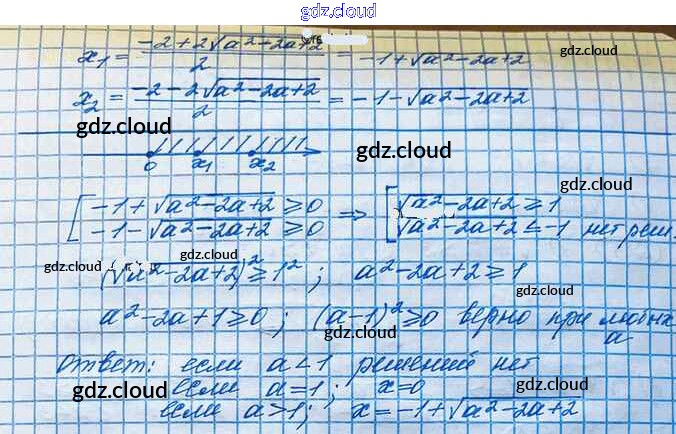 gdz.cloud
x₁ = (-2+2√(a²-2a+2))/2 = -1+√(a²-2a+2) gdz.cloud
x₂ = (-2-2√(a²-2a+2))/2 = -1-√(a²-2a+2)
gdz.cloud
0 x₁ x₂ gdz.cloud
[ -1+√(a²-2a+2) ≥ 0 ⇒ [ √(a²-2a+2) ≥ 1
-1-√(a²-2a+2) ≥ 0 √(a²-2a+2) ≤ -1 нет реш.
gdz.cloud gdz.cloud
(√(a²-2a+2))² ≥ 1²; a²-2a+2 ≥ 1
gdz.cloud
a²-2a+1 ≥ 0; (a-1)² ≥ 0 верно при любых
gdz.cloud a
Ответ: если a<1 решений нет
если a=1; x=0
gdz.cloud gdz.cloud
если a>1; x=-1+√(a²-2a+2)
gdz.cloud